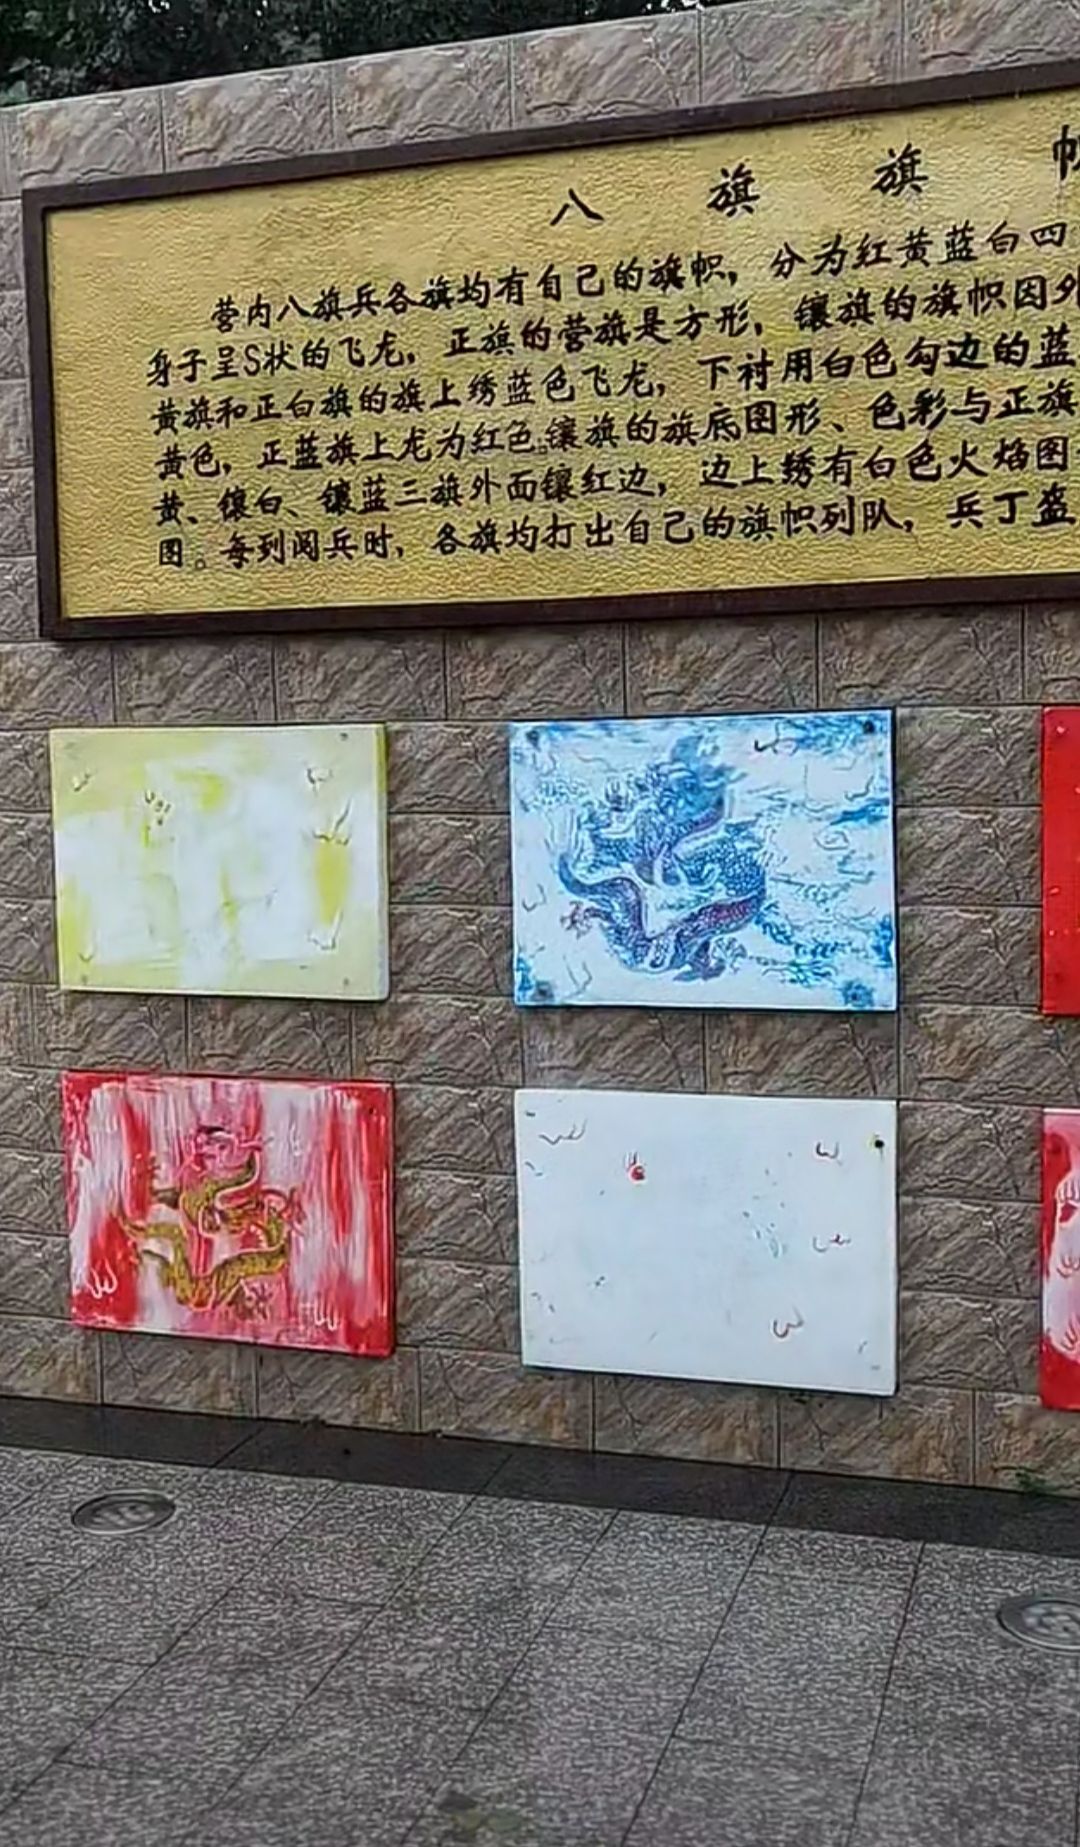 八旗旗帜
营内八旗兵各旗均有自己的旗帜，分为红黄蓝白四
身子呈S状的飞龙，正旗的营旗是方形，镶旗的旗帜因外
黄旗和正白旗的旗上绣蓝色飞龙，下衬用白色勾边的蓝
黄色，正蓝旗上龙为红色。镶旗的旗底图形、色彩与正旗
黄、镶白、镶蓝三旗外面镶红边，边上绣有白色火焰图
图。每到阅兵时，各旗均打出自己的旗帜列队，兵丁盔